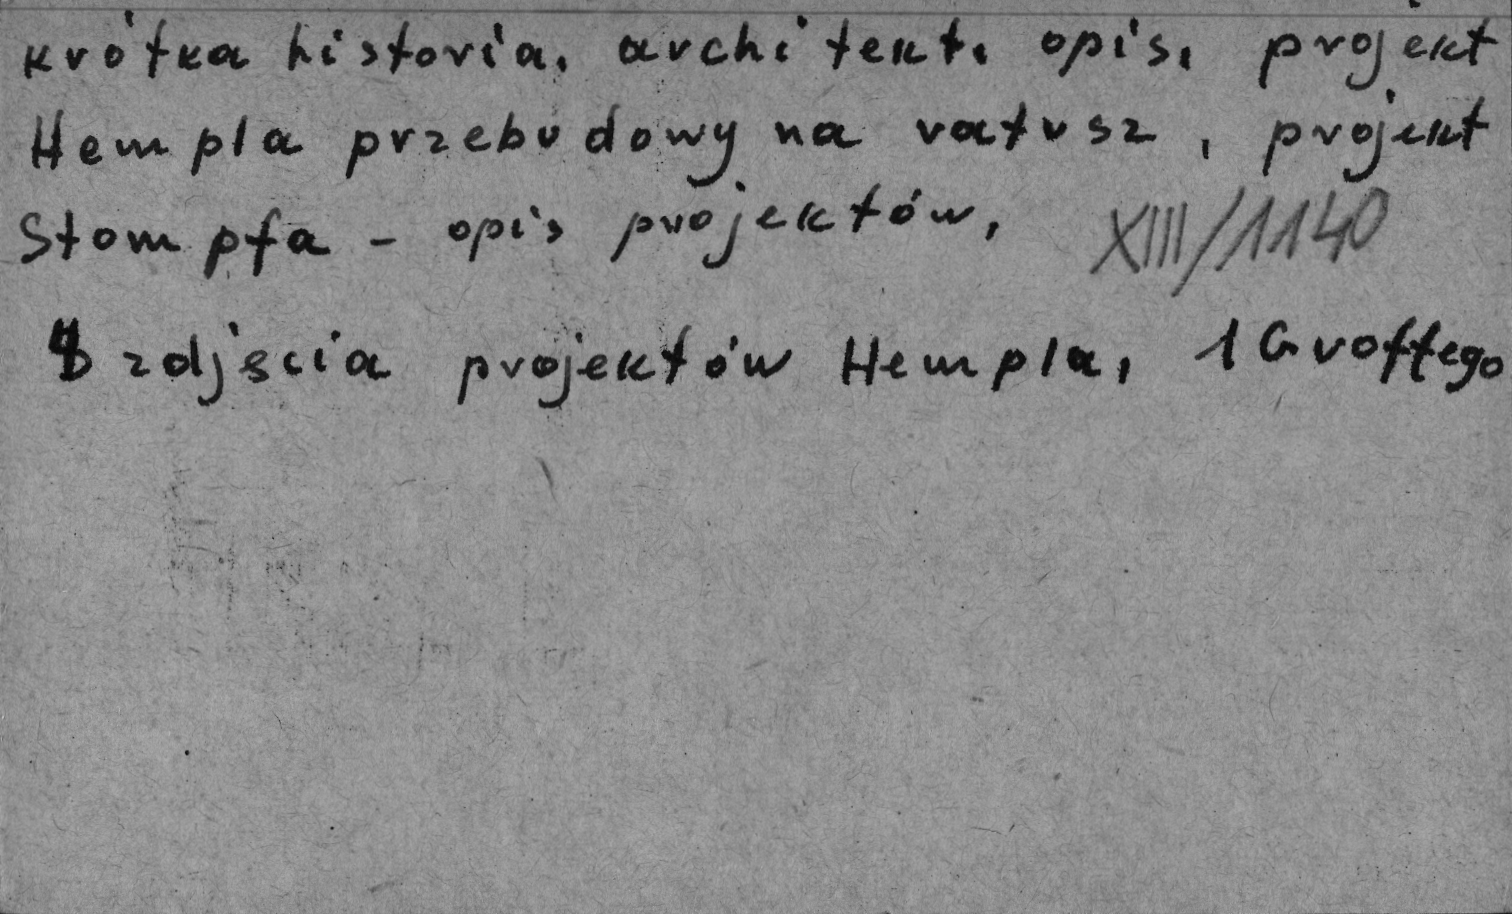 krótka historia, architekt. opis, projekt
Hempla przebudowy na ratusz, projekt
Stompfa - opis projektów, XIII/1140
zdjęcia projektów Hempla, 1 Groffego